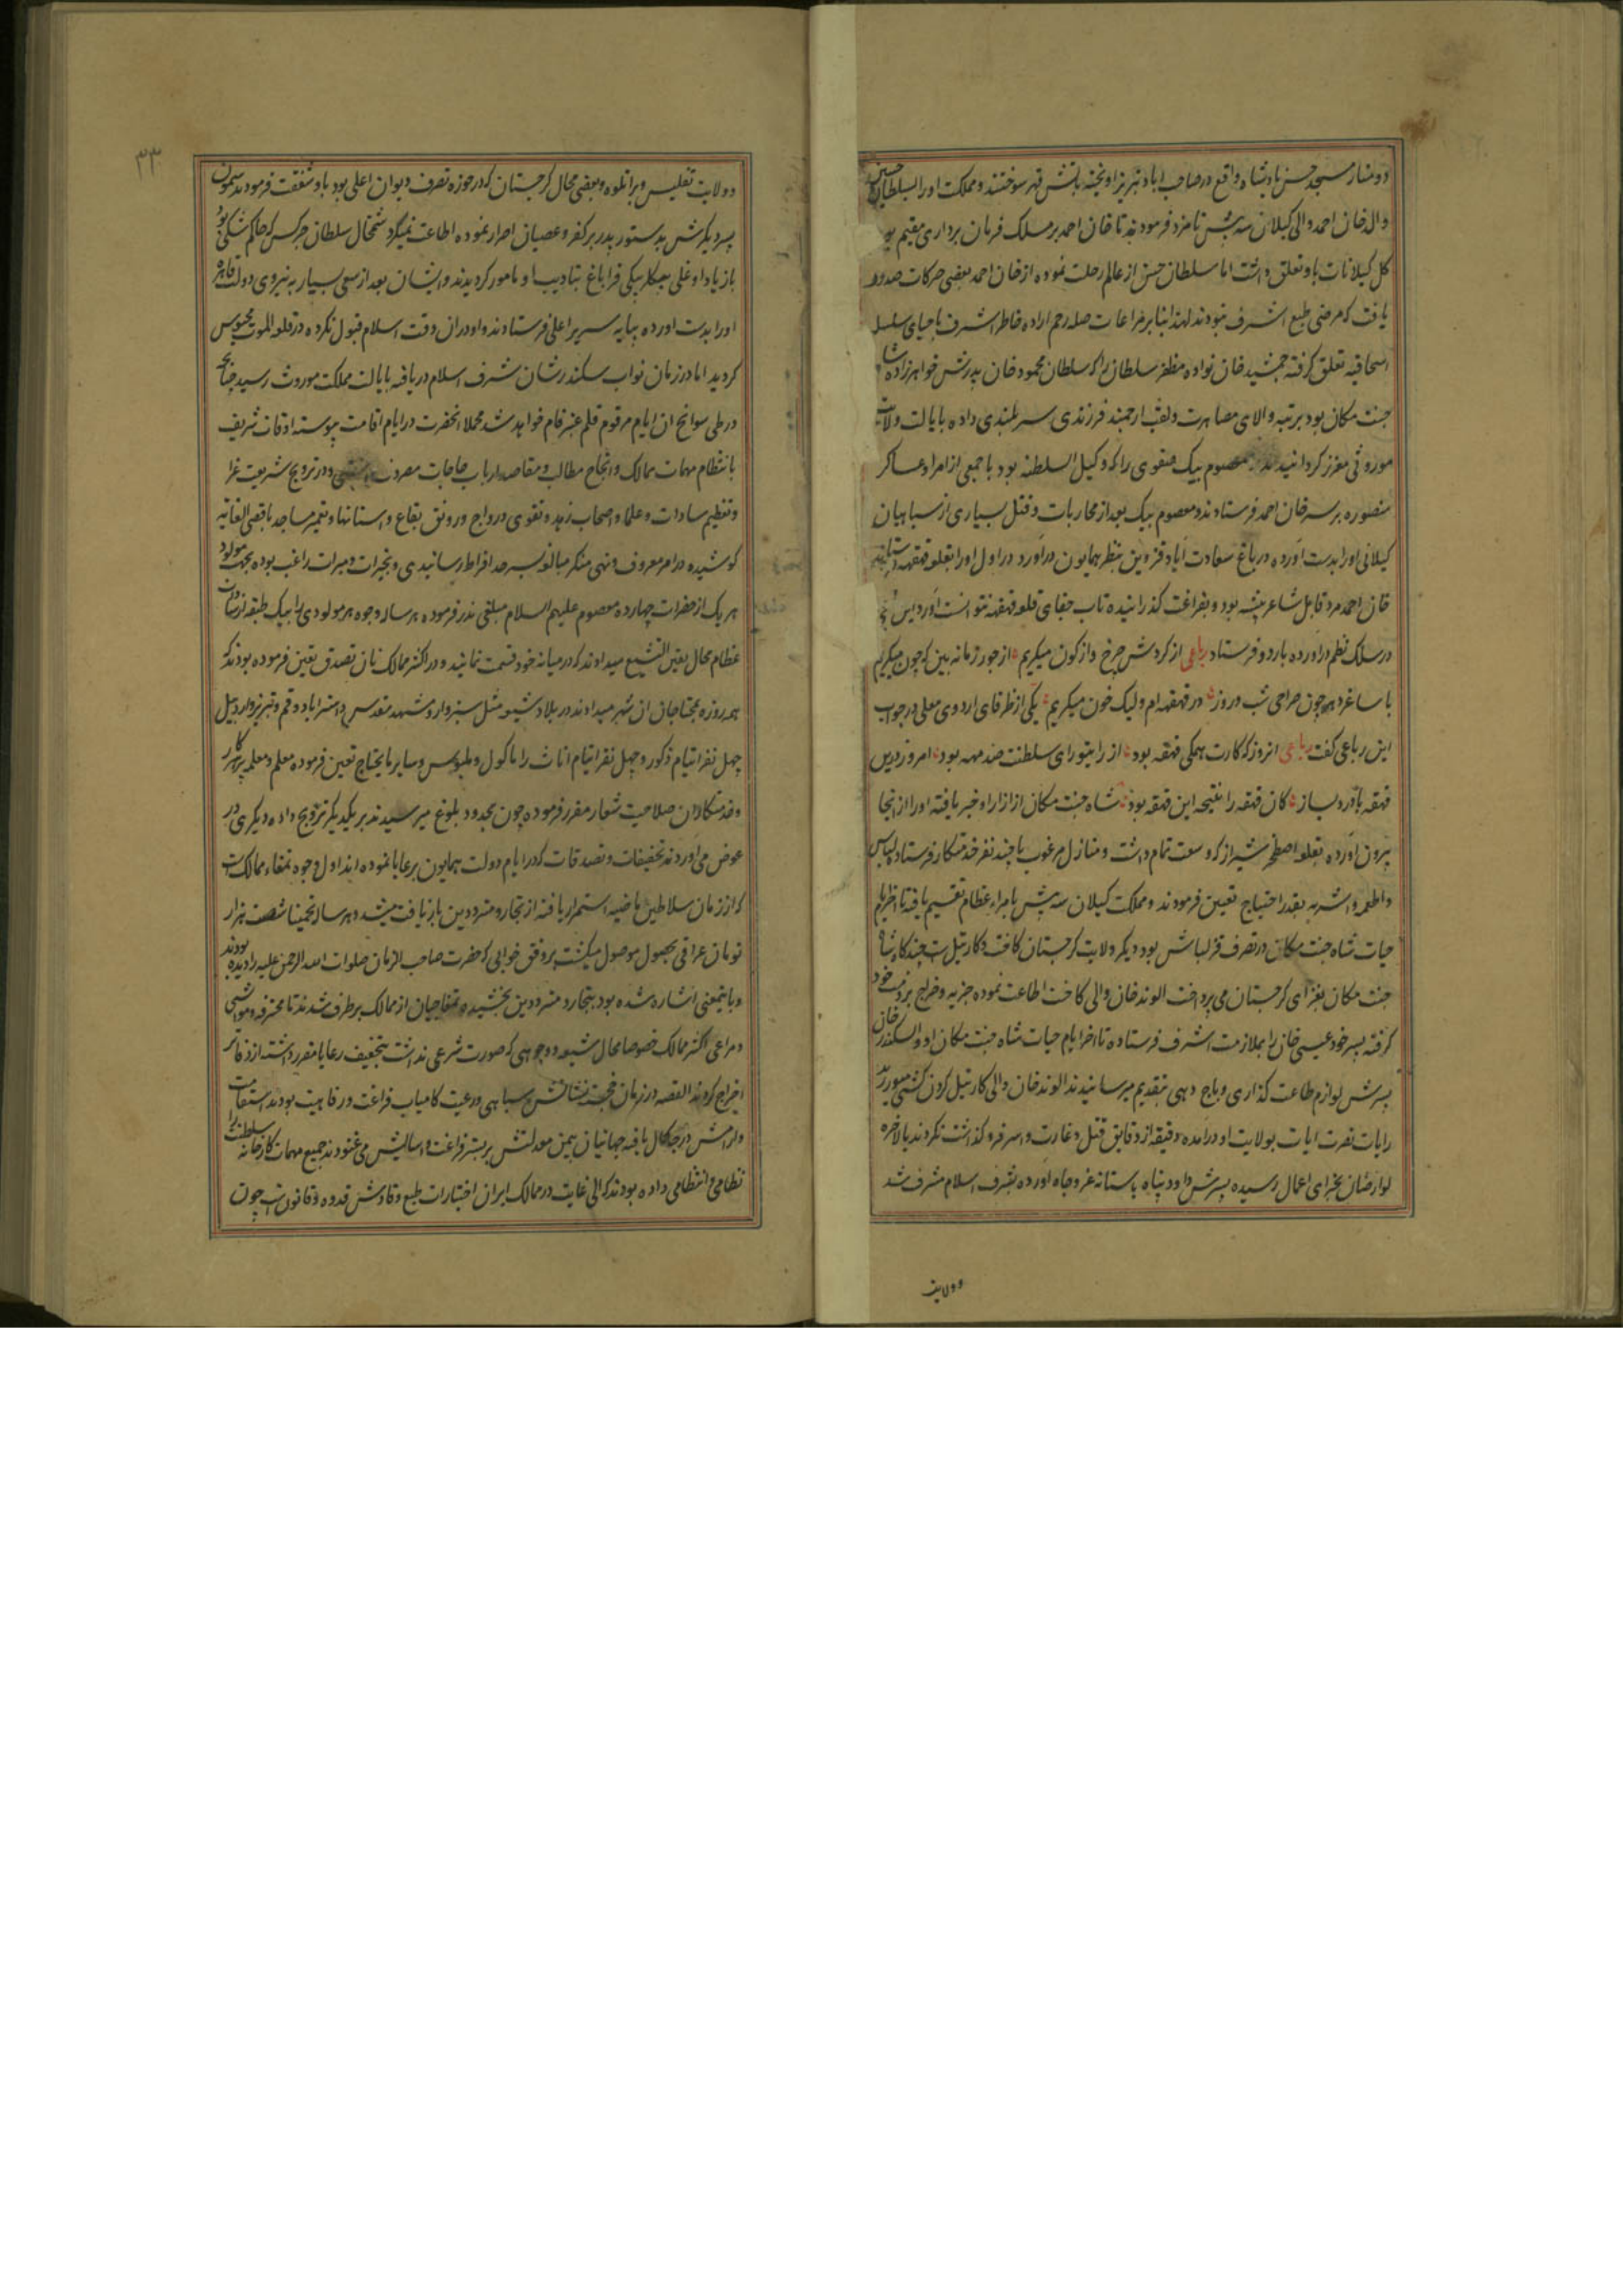 دو منار مسجد حسن پادشاه واقع در صاحب اباد تبریز اویخته باتش قهر سوختند و مملکت او را بسلطان حسین
والد خان احمد والی کیلان سه پس نامزد فرمودند تا خان احمد بر مسلک فرمان برداری مقیم بود
کل کیلانات باو تعلق داشت اما سلطان حسن از عالم رحلت نموده از خان احمد بعضی حرکات صدور
یافت که مرضی طبع اشرف نبودند لهذا بنابر مراعات صله رحم اراده خاطر اشرف باحیای سلسله
اسحاقیه تعلق کرفته جمشید خان نواده مظفر سلطان را که سلطان محمود خان پدرش خواهرزاده شاه
جنت مکان بود برتبه والای مصاهرت و لقب ارجمند فرزندی سر بلندی داده بایالت ولایت
موروثی معزز کردانیدند معصوم بیک صفوی را که وکیل السلطنه بود با جمعی از امرا و عساکر
منصوره بر سر خان احمد فرستادند و معصوم بیک بعد از محاربات و قتل بسیاری از سپاهیان
کیلانی او را بدست آورده در باغ سعادت آباد قزوین بنظر همایون درآورد در اول او را بقلعه قهقهه
خان احمد مرد قابل شاعر پیشه بود و بفراغت کذرانیده تاب جفای قلعه قهقهه نتوانست آورد این
در سلک نظم درآورده باردو فرستاد رباعی از کردش چرخ واژکون میکریم از جور زمانه بین که چون میکریم
با ساغرد همچون صراحی شب و روز در قهقهه ام ولیک خون میکریم یکی از ظرفای اردوی معلی در جواب
این رباعی کفت رباعی انروز که کارت همکی قهقهه بود از رای تو رای سلطنت صد مهه بود امروز درین
قهقهه باکریه بساز کان قهقهه را نتیجه این قهقهه بود شاه جنت مکان از ازار او خبر یافته او را از انجا
بیرون آورده بقلعه اصطخر شیراز که وسعت تمام داشت و منازل مرغوب با چند نفر خدمتکار فرستاده لباس
و اطعمه و اشربه بقدر احتیاج تعیین فرمودند و مملکت کیلان سه پس بامراء عظام تقسیم یافته تا اخر ایام
حیات شاه جنت مکان در تصرف قزلباش بود دیکر ولایت کرجستان کاخت و کارتیل است چند کاه شاه
جنت مکان بغزای کرجستان می پرداخت الوند خان والی کاخت اطاعت نموده جزیه و خراج بر ذمت خود
کرفته پسر خود عیسی خان را بملازمت اشرف فرستاده تا اخر ایام حیات شاه جنت مکان او و اسکندر خان
پسرش لوازم طاعت کذاری و باج دهی بتقدیم میرسانیدند الوند خان والی کارتیل کردن کشی میورزید
رایات نصرت ایات بولایت او درامده دقیقه از دقایق قتل و غارت و اسر فروکذاشت نکردند بالاخره
لوارصاب بجزای اعمال رسیده پسرش داود پناه باستانه عز و جاه اورده بشرف اسلام مشرف شد
وولایت
۳۳
و ولایت تفلیس و براتلوه و بعضی محال کرجستان که در حوزه تصرف دیوان اعلی بود باو شفقت فرمودند سمون
پسر دیکرش بدستور پدر بر کفر و عصیان اصرار نموده اطاعت نمیکرد شمخال سلطان چرکس که حاکم شکی بود
با زیاد اوغلی بیکلربیکی قراباغ بتادیب او مامور کردیدند و ایشان بعد از سعی بسیار به نیروی دولت قاهره
او را بدست اورده بپایه سریر اعلی فرستادند و او در ان وقت اسلام قبول نکرده در قلعه الموت محبوس
کردید اما در زمان نواب سکندر شان شرف اسلام دریافته بایالت مملکت موروث رسید چنانچه
در طی سوانح ان ایام مرقوم قلم عنبر فام خواهد شد مجملا انحضرت در ایام اقامت پیوسته اوقات شریف
بانتظام مهمات ممالک و انجاح مطالب و مقاصد ارباب حاجات مصروف داشتی و در ترویج شریعت غرا
و تعظیم سادات و علما و اصحاب زهد و تقوی و رواج و رونق بقاع و استانها و تعمیر مساجد باقصی الغایه
کوشیده در امر معروف و نهی منکر مبالغه بسرحد افراط رسانیدی و بخیرات و مبرات راغب بوده بجهت مولود
هر یک از حضرات چهارده معصوم علیهم السلام مبلغی نذر فرموده هر ساله وجوه هر مولودی را بیک طبقه از سادات
عظام محال یقین التشیع میدادند که در میانه خود قسمت نمایند و در اکثر ممالک نان تصدق تعین فرموده بودند که
همه روزه بمحتاجان ان شهر میدادند در بلاد شیعه مثل سبزوار و مشهد مقدس و استراباد و قم و تبریز و اردبیل
چهل نفر ایتام ذکور و چهل نفر ایتام اناث را ماکول و ملبوس و سایر مایحتاج تعین فرموده معلم و معلمه پرهیزکار
و خدمتکاران صلاحیت شعار مقرر فرموده چون بحدود بلوغ میرسیدند بر یکدیکر تزویج داده دیکری در
عوض می اوردند تخفیفات و تصدقات که در ایام دولت همایون برعایا نموده اند اول وجوه تمغاء ممالک است
که از زمان سلاطین ماضیه استمرار یافته از تجار و مترددین بازیافت میشد و هر ساله تخمینا شصت هزار
تومان عراقی بحصول موصول میکشت بر وفق خوابی که حضرت صاحب الزمان صلوات الله الرحمن علیه را دیده بودند
و باینمعنی اشاره شده بود بتجار و مترددین بخشیده تمغاجیان از ممالک بر طرف شدند تا محترفه و مواشی
و مراعی اکثر ممالک خصوصا محال شیعه و وجوهی که صورت شرعی نداشت بتخفیف رعایا مقرر داشته از دفاتر
اخراج کردند القصه در زمان خجسته نشانش سپاهی و رعیت کامیاب فراغت و رفاهیت بودند استقامت
و ارامش درجه کمال یافته جهانیان بیمن معدلتش بر بستر فراغت و اسایش می غنودند جمیع مهمات کارخانه سلطنت را
نظامی و انتظامی داده بودند که الی غایت در ممالک ایران اختیارات طبع وقادش قدوه و قانون است چون